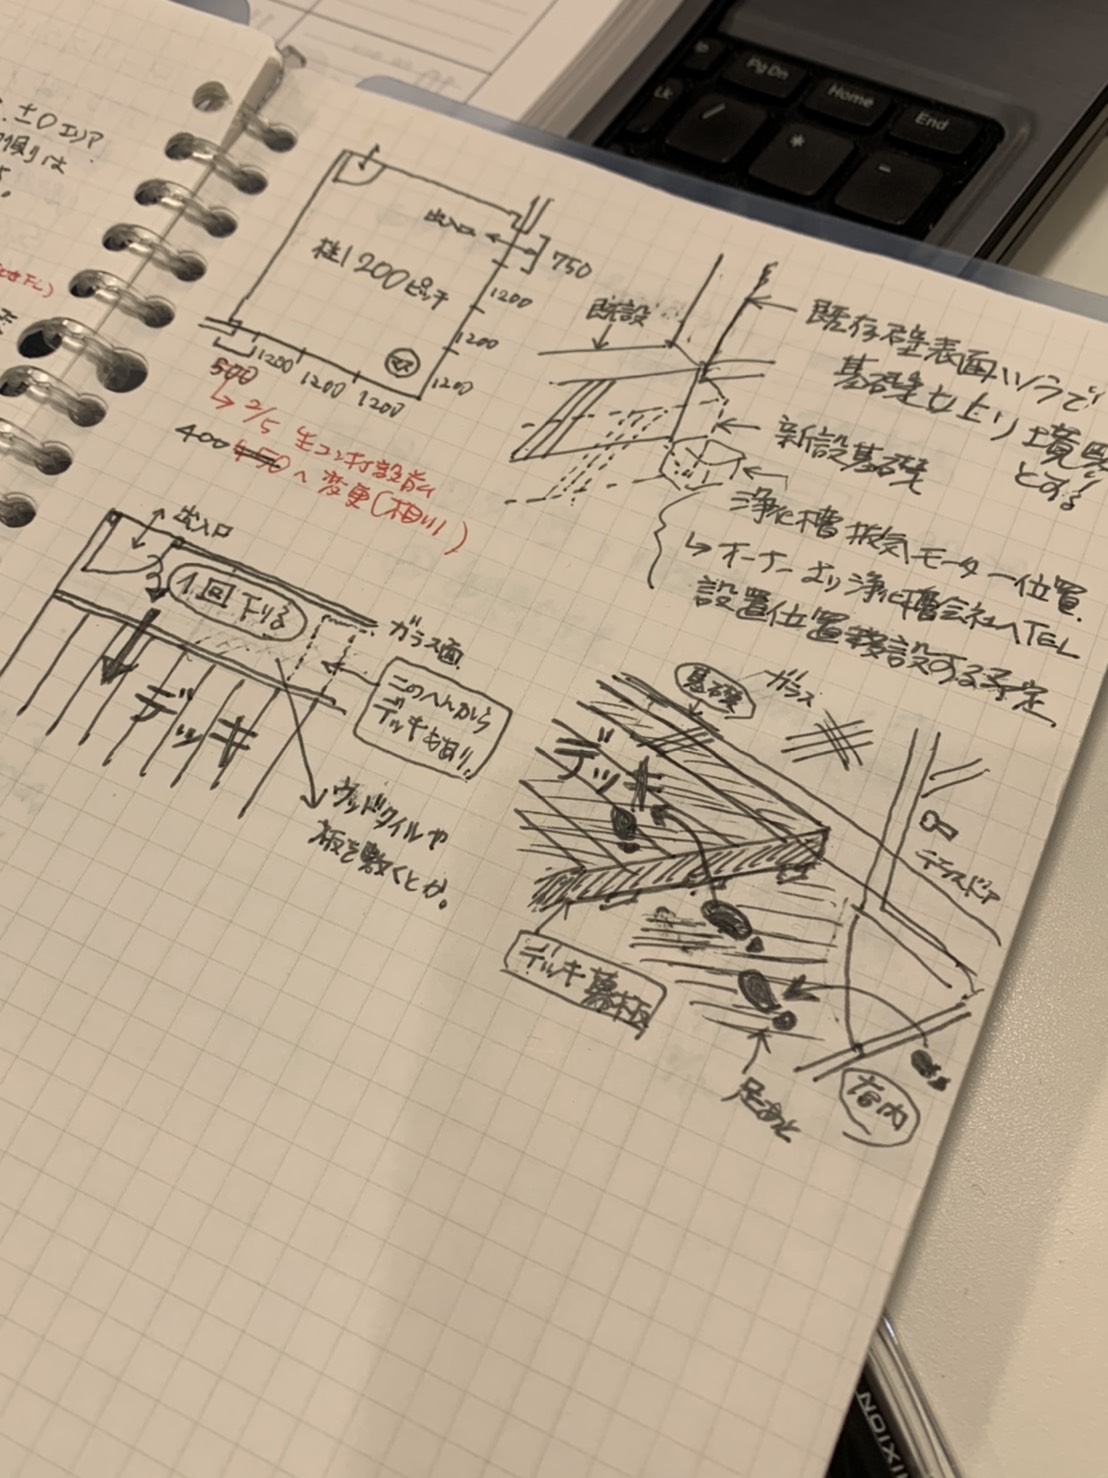 ±0エリア
傾りは
出入口
750
柱1200ピッチ
1200
1200
1200
マス
500
1200
1200
1200
↳ 2/5 生コン打設前
400 450 へ変更(相川)
既設
既存壁表面ハツって
基礎立上り
とする
新設基礎
浄化槽 排気モーター位置
↳ オーナーより浄化槽会社へTEL
設置位置移設する予定
出入口
1回下りる
ガラス面
デッキ
このへんから
デッキもあり。
ウッドタイルや
板を敷くとか。
基礎
ガラス
デッキ
テラスドア
デッキ幕板
足あと
店内
Pg Dn
Home
End
/
*
-
Lk
IXION